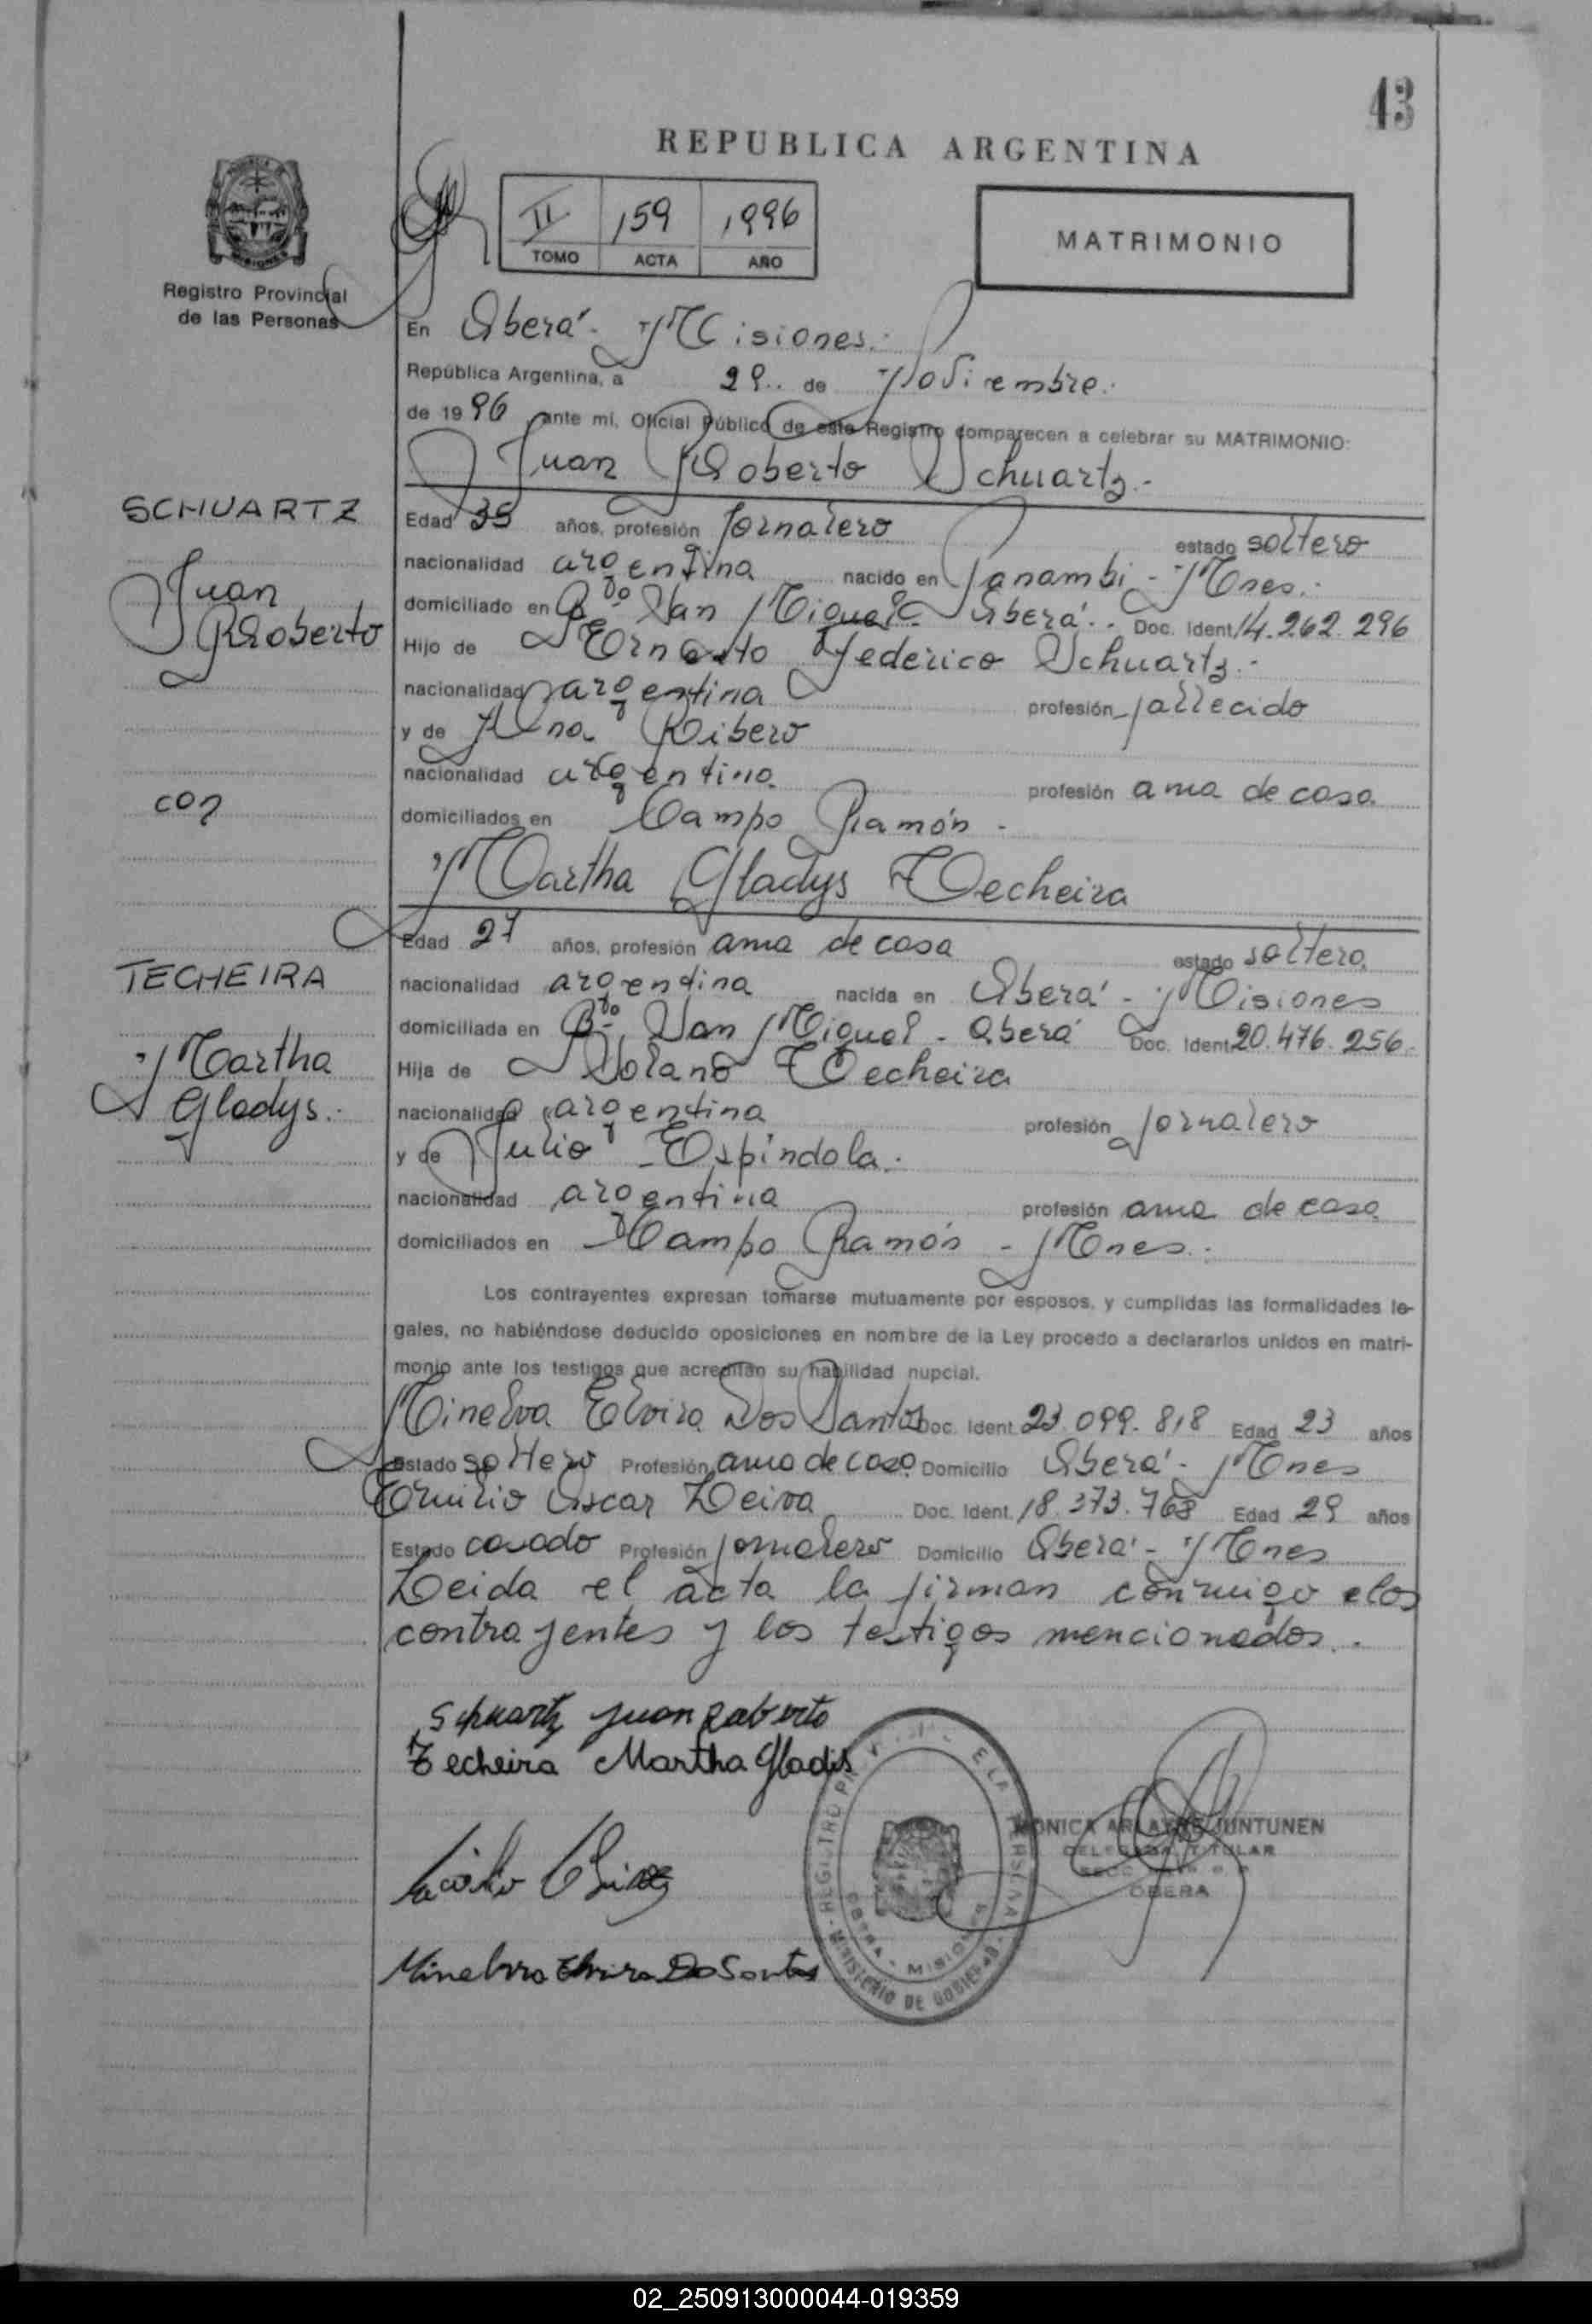 43
REPUBLICA ARGENTINA
II 159 1996
TOMO ACTA AÑO
MATRIMONIO
Registro Provincial
de las Personas
En Oberá - Misiones.-
República Argentina, a 29.. de Noviembre.
de 1996 ante mi, Oficial Público de este Registro comparecen a celebrar su MATRIMONIO:
Juan Roberto Schuartz.-
SCHUARTZ
Juan
Roberto
con
TECHEIRA
Martha
Gladys.-
Edad años, profesión Jornalero estado soltero
nacionalidad argentina nacido en Panambi - Mnes.-
domiciliado en Bdo San Miguel - Oberá.. Doc. Ident 14.262.296
Hijo de Ernesto Federico Schuartz.-
nacionalidad argentina profesión fallecido
y de Ana Ribero
nacionalidad argentina profesión ama de casa
domiciliados en Campo Ramón -
Martha Gladys Techeira
Edad 27 años, profesión ama de casa estado soltera
nacionalidad argentina nacida en Oberá - Misiones
domiciliada en Bdo San Miguel - Oberá Doc. Ident 20.476.256-
Hija de Solano Techeira
nacionalidad argentina profesión Jornalero
y de Julia Espindola.
nacionalidad argentina profesión ama de casa
domiciliados en Campo Ramón - Mnes.-
Los contrayentes expresan tomarse mutuamente por esposos, y cumplidas las formalidades le-
gales, no habiéndose deducido oposiciones en nombre de la Ley procedo a declararlos unidos en matri-
monio ante los testigos que acreditan su habilidad nupcial.
Minelva Elvira Dos Santos Doc. Ident. 23.099.818 Edad 23 años
Estado soltera Profesión ama de casa Domicilio Oberá - Mnes
Emilio Oscar Leiva Doc. Ident. 18.373.768 Edad 29 años
Estado casado Profesión jornalero Domicilio Oberá - Mnes
Leida el acta la firman conmigo los
contrayentes y los testigos mencionados.-
Schuartz Juan Roberto
Techeira Martha Gladis
Minelvra Elvira Do Santos
REGISTRO
OBERA - MISIONES
MINISTERIO DE GOBIERNO
MONICA JUNTUNEN
DELEGADA TITULAR
OBERA
02_250913000044-019359